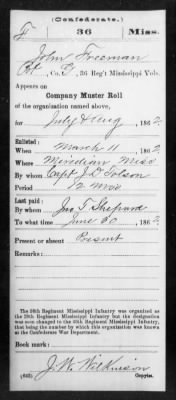 (Confederate.)
F 36 Miss.
John Freeman
Pt, Co. F, 36 Reg't Mississippi Vols.
Appears on
Company Muster Roll
of the organization named above,
for July & Aug, 1862.
Enlisted:
When March 11, 1862.
Where Meridian Miss
By whom Capt J. D. Tolson
Period 12 mos
Last paid:
By whom Jno. T. Shepard
To what time June 30, 1862.
Present or absent Present
Remarks:
The 36th Regiment Mississippi Infantry was organized as
the 39th Regiment Mississippi Infantry but the designation
was soon changed to the 36th Regiment Mississippi Infantry,
that being the number by which this organization was known at
the Confederate War Department.
Book mark:
J. W. Wilkinson
(642) Copyist.